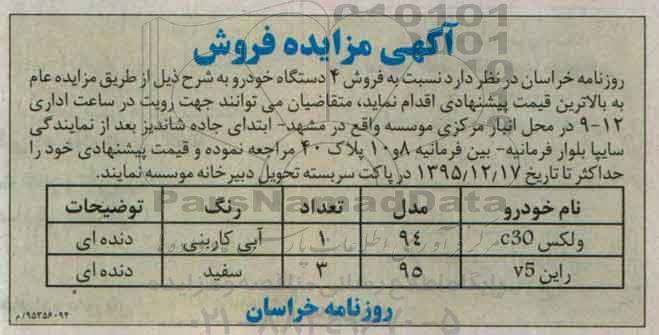 آگهی مزایده فروش
روزنامه خراسان در نظر دارد نسبت به فروش ۴ دستگاه خودرو به شرح ذیل از طریق مزایده عام
به بالاترین قیمت پیشنهادی اقدام نماید، متقاضیان می توانند جهت رویت در ساعت اداری
۹-۱۲ در محل انبار مرکزی موسسه واقع در مشهد- ابتدای جاده شاندیز بعد از نمایندگی
سایپا بلوار فرمانیه- بین فرمانیه ۸و۱۰ پلاک ۴۰ مراجعه نموده و قیمت پیشنهادی خود را
حداکثر تا تاریخ ۱۳۹۵/۱۲/۱۷ در پاکت سربسته تحویل دبیرخانه موسسه نمایند.
نام خودرو مدل تعداد رنگ توضیحات
ولکس c30 ۹۴ ۱ آبی کاربنی دنده ای
راین v5 ۹۵ ۳ سفید دنده ای
روزنامه خراسان
۹۵۳۵۶۰۹۴/م
ParsNamadData